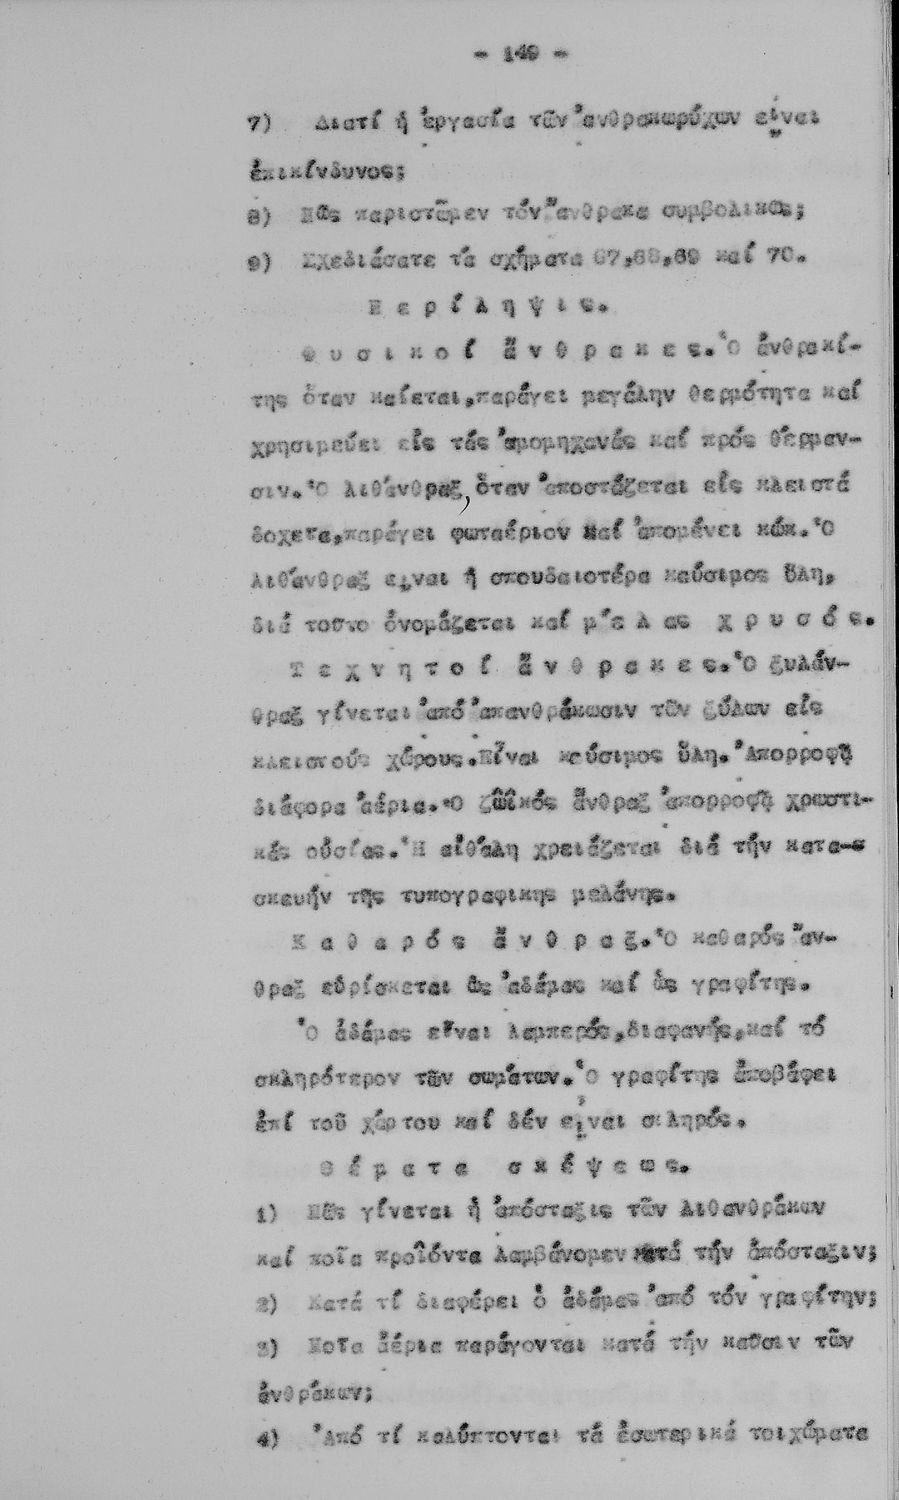 - 149 -
7) Διατί ἡ ἐργασία τῶν ἀνθρακωρύχων εἶναι
ἐπικίνδυνος;
8) Πῶς παριστῶμεν τόν ἄνθρακα συμβολικῶς;
9) Σχεδιάσατε τά σχήματα 67,68,69 καί 70.
Π ε ρ ί λ η ψ ι ς.
Φ υ σ ι κ ο ί ἄ ν θ ρ α κ ε ς. Ὁ ἀνθρακί-
της ὅταν καίεται, παράγει μεγάλην θερμότητα καί
χρησιμεύει εἰς τάς ἀμομηχανάς καί πρός θέρμαν-
σιν. Ὁ λιθάνθραξ, ὅταν ἀποστάζεται εἰς κλειστά
δοχεῖα, παράγει φωταέριον καί ἀπομένει κώκ. Ὁ
λιθάνθραξ εἶναι ἡ σπουδαιοτέρα καύσιμος ὕλη,
διά τοῦτο ὀνομάζεται καί μ έ λ ας χ ρ υ σ ό ς.
Τ ε χ ν η τ ο ί ἄ ν θ ρ α κ ε ς. Ὁ ξυλάν-
θραξ γίνεται ἀπό ἀπανθράκωσιν τῶν ξύλων εἰς
κλειστούς χώρους. Εἶναι καύσιμος ὕλη. Ἀπορροφᾷ
διάφορα ἀέρια. Ὁ ζωϊκός ἄνθραξ ἀπορροφᾷ χρωστι-
κάς οὐσίας. Ἡ αἰθάλη χρειάζεται διά τήν κατα-
σκευήν τῆς τυπογραφικῆς μελάνης.
Κ α θ α ρ ό ς ἄ ν θ ρ α ξ. Ὁ καθαρός ἄν-
θραξ εὑρίσκεται ὡς ἀδάμας καί ὡς γραφίτης.
Ὁ ἀδάμας εἶναι λαμπερός, διαφανής, καί τό
σκληρότερον τῶν σωμάτων. Ὁ γραφίτης ἀποβάφει
ἐπί τοῦ χάρτου καί δέν εἶναι σκληρός.
Θ έ μ α τ α σ κ έ ψ ε ω ς.
1) Πῶς γίνεται ἡ ἀπόσταξις τῶν λιθανθράκων
καί ποῖα προϊόντα λαμβάνομεν κατά τήν ἀπόσταξιν;
2) Κατά τί διαφέρει ὁ ἀδάμας ἀπό τόν γραφίτην;
3) Ποῖα ἀέρια παράγονται κατά τήν καῦσιν τῶν
ἀνθράκων;
4) Ἀπό τί καλύπτονται τά ἐσωτερικά τοιχώματα